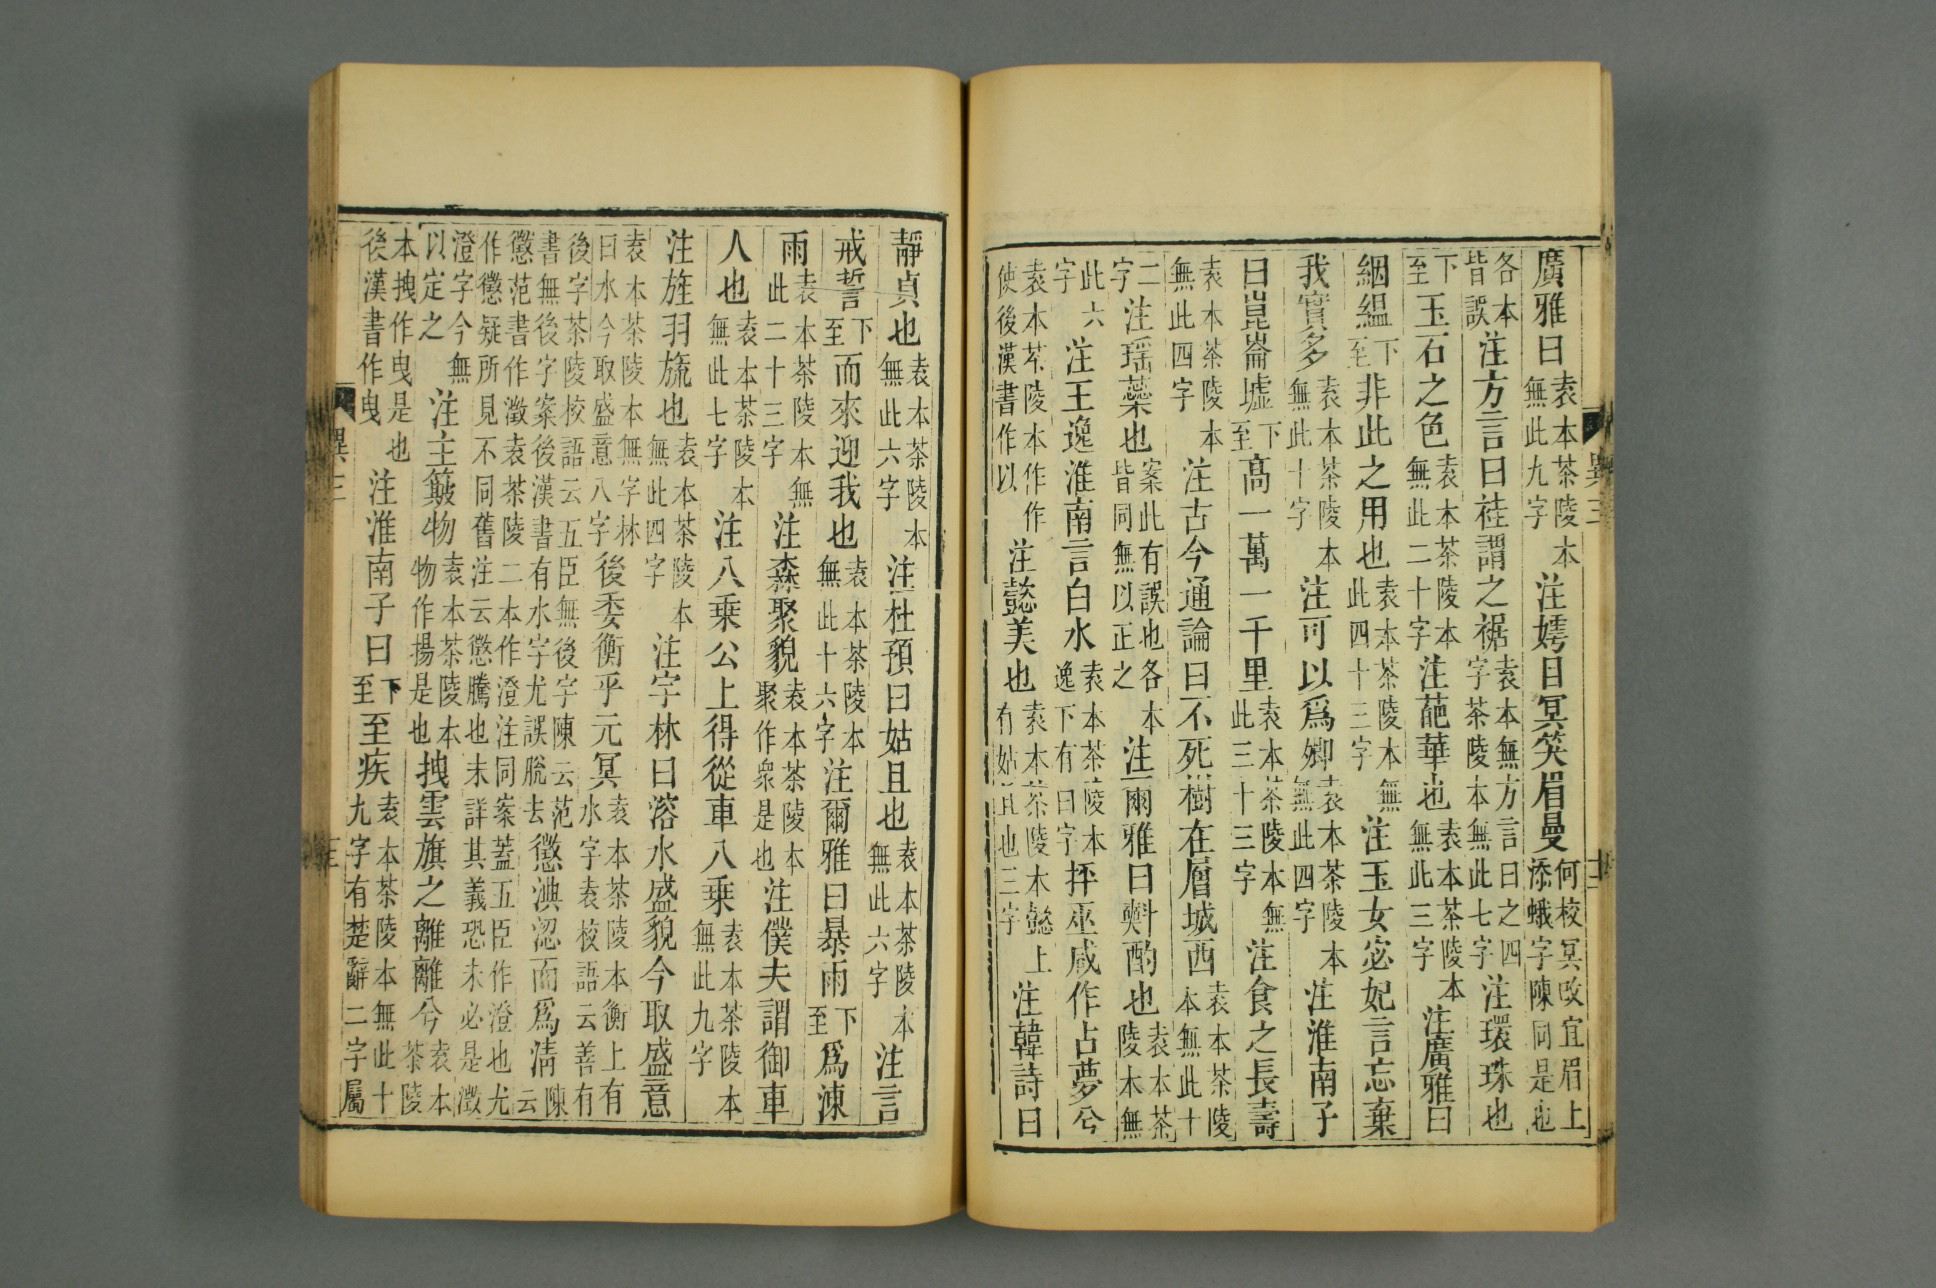 廣雅曰袁本茶陵本無此九字注嫮目冥笑眉曼何校冥改宜眉上添蛾字陳同是也
各本皆誤注方言曰袿謂之裾袁本無方言曰之四字茶陵本無此七字注環珠也
下至玉石之色袁本茶陵本無此二十字注葩華也袁本茶陵本無此三字注廣雅曰
絪緼下至非此之用也袁本茶陵本無此四十三字注玉女宓妃言忘棄
我實多袁本茶陵本無此十字注可以爲卿袁本茶陵本無此四字注淮南子
曰崑崙墟下至高一萬一千里袁本茶陵本無此三十三字注食之長壽
袁本茶陵本無此四字注古今通論曰不死樹在層城西袁本茶陵本無此十
二字注瑶蘂也案此有誤也各本皆同無以正之注爾雅曰㪺酌也袁本茶陵本無
此六字注王逸淮南言白水袁本茶陵本逸下有曰字抨巫咸作占夢兮
袁本茶陵本作作使後漢書作以注懿美也袁本茶陵本懿上有姑且也三字注韓詩曰
異三
十二
靜貞也袁本茶陵本無此六字注杜預曰姑且也袁本茶陵本無此六字注言
戒誓下至而來迎我也袁本茶陵本無此十六字注爾雅曰暴雨下至爲涷
雨袁本茶陵本無此二十三字注森聚貌袁本茶陵本聚作衆是也注僕夫謂御車
人也袁本茶陵本無此七字注八乗公上得從車八乗袁本茶陵本無此九字
注旌羽旒也袁本茶陵本無此四字注字林曰溶水盛貌今取盛意
袁本茶陵本無字林曰水今取盛意八字後委衡乎元冥袁本茶陵本衡上有水字袁校語云善有
後字茶陵校語云五臣無後字陳云范書無後字案後漢書有水字尤誤脫去懲淟涊而爲清陳云
懲范書作澂袁茶陵二本作澄注同案蓋五臣作澄也尤作懲疑所見不同舊注云懲騰也未詳其義恐未必是澂
澄字今無以定之注主簸物袁本茶陵本物作揚是也拽雲旗之離離兮袁本茶陵
本拽作曳是也後漢書作曳注淮南子曰下至至疾袁本茶陵本無此十九字有楚辭二字屬
異三
三